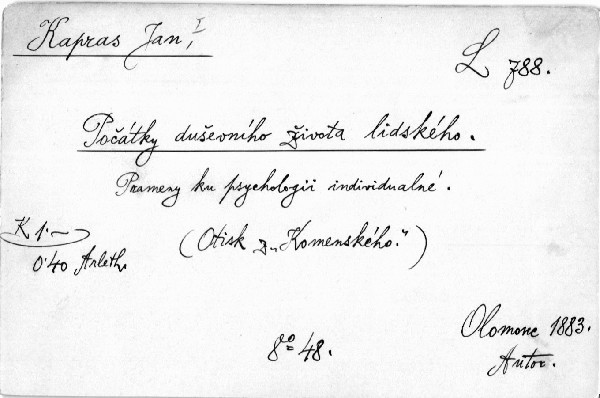 Kapras Jan, I
L 788.
Počátky duševního života lidského.
Prameny ku psychologii individualné.
K 1·—
0·40 Arleth.
(Otisk z „Komenského.")
8º 48.
Olomouc 1883.
Autor.